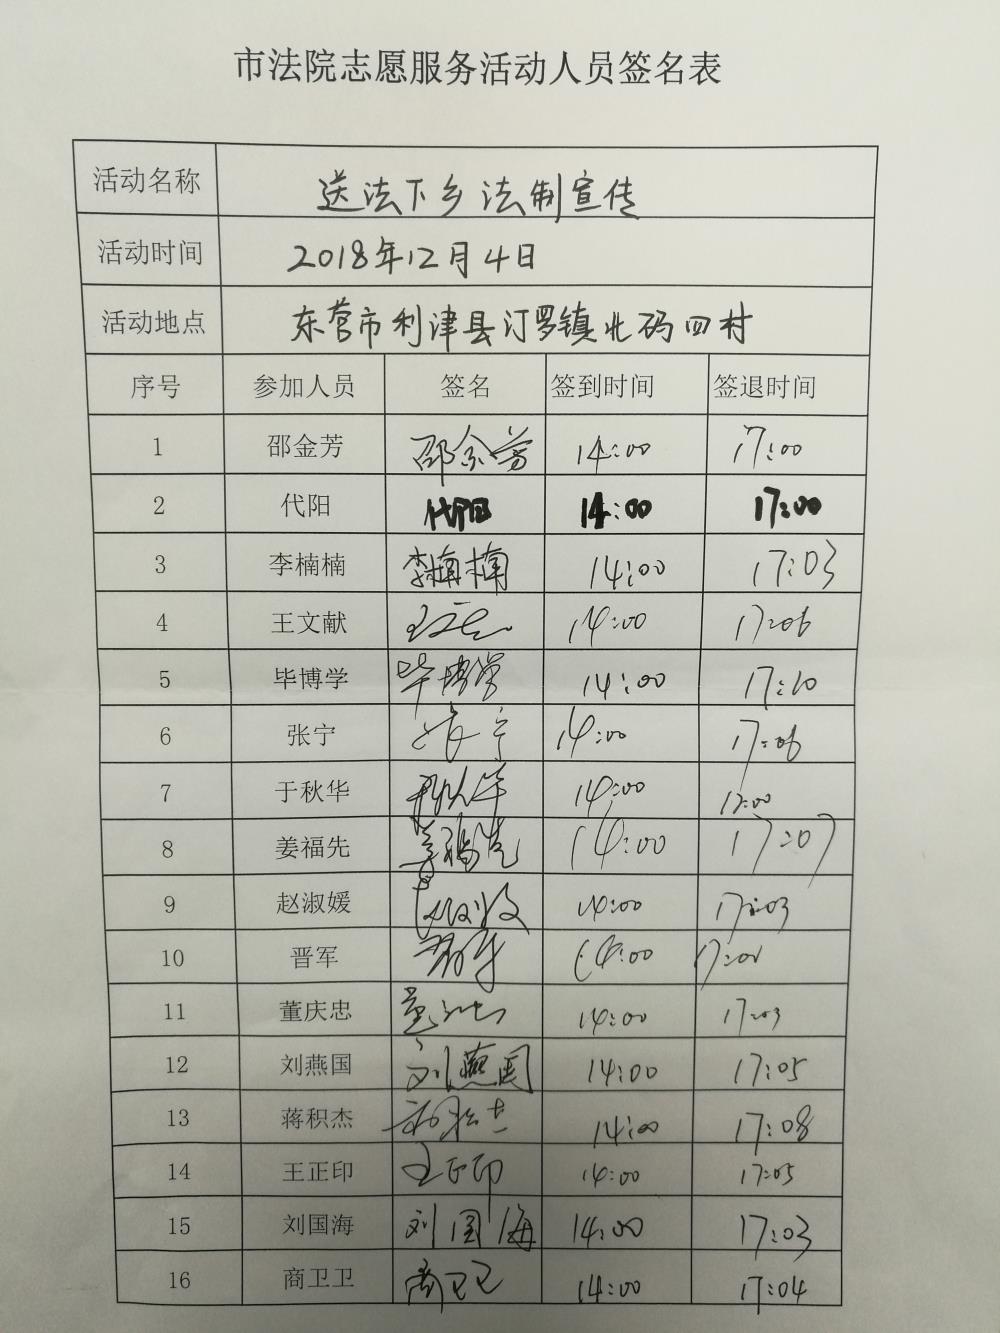 市法院志愿服务活动人员签名表
活动名称 送法下乡 法制宣传
活动时间 2018年12月4日
活动地点 东营市利津县汀罗镇北码四村
序号 参加人员 签名 签到时间 签退时间
1 邵金芳 邵金芳 14:00 17:00
2 代阳 代阳 14:00 17:00
3 李楠楠 李楠楠 14:00 17:03
4 王文献 14:00 17:06
5 毕博学 毕博学 14:00 17:10
6 张宁 张宁 14:00 17:06
7 于秋华 于秋华 14:00 17:00
8 姜福先 姜福先 14:00 17:07
9 赵淑媛 14:00 17:03
10 晋军 14:00
11 董庆忠 14:00 17:03
12 刘燕国 刘燕国 14:00 17:05
13 蒋积杰 14:00 17:08
14 王正印 王正印 14:00 17:05
15 刘国海 刘国海 14:00 17:03
16 商卫卫 商卫卫 14:00 17:04